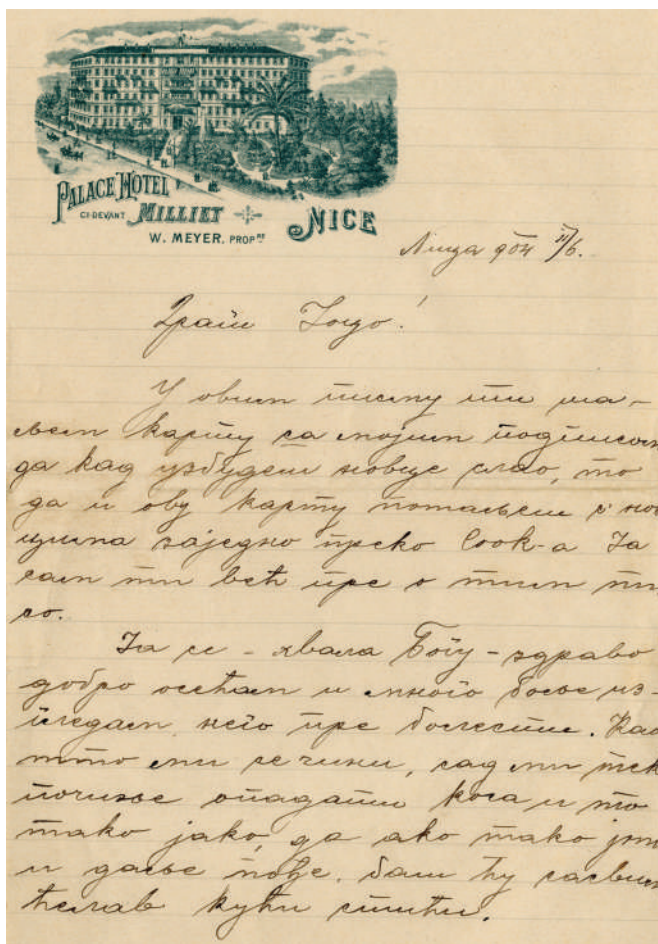 PALACE HOTEL
CI-DEVANT MILLIET NICE
W. MEYER. PROPRE
Ница 904 II/6.
Драги Јоцо!
У овим писму ти ша-
љем карту са мојим подписом
да кад узбудеш новце слао, то
да и ову карту пошаљеш с нов
цима заједно преко Cook-а Ја
сам ти већ пре о тим пи
со.
Ја се - хвала Богу - здраво
добро осећам и много боље из-
гледам, него пре болести. Као
што ми се чини, сад ми тек
почиње опадати коса и то
тако јако, да ако тако још
и даље пође, баш ћу сасвим
ћелав кући стићи.